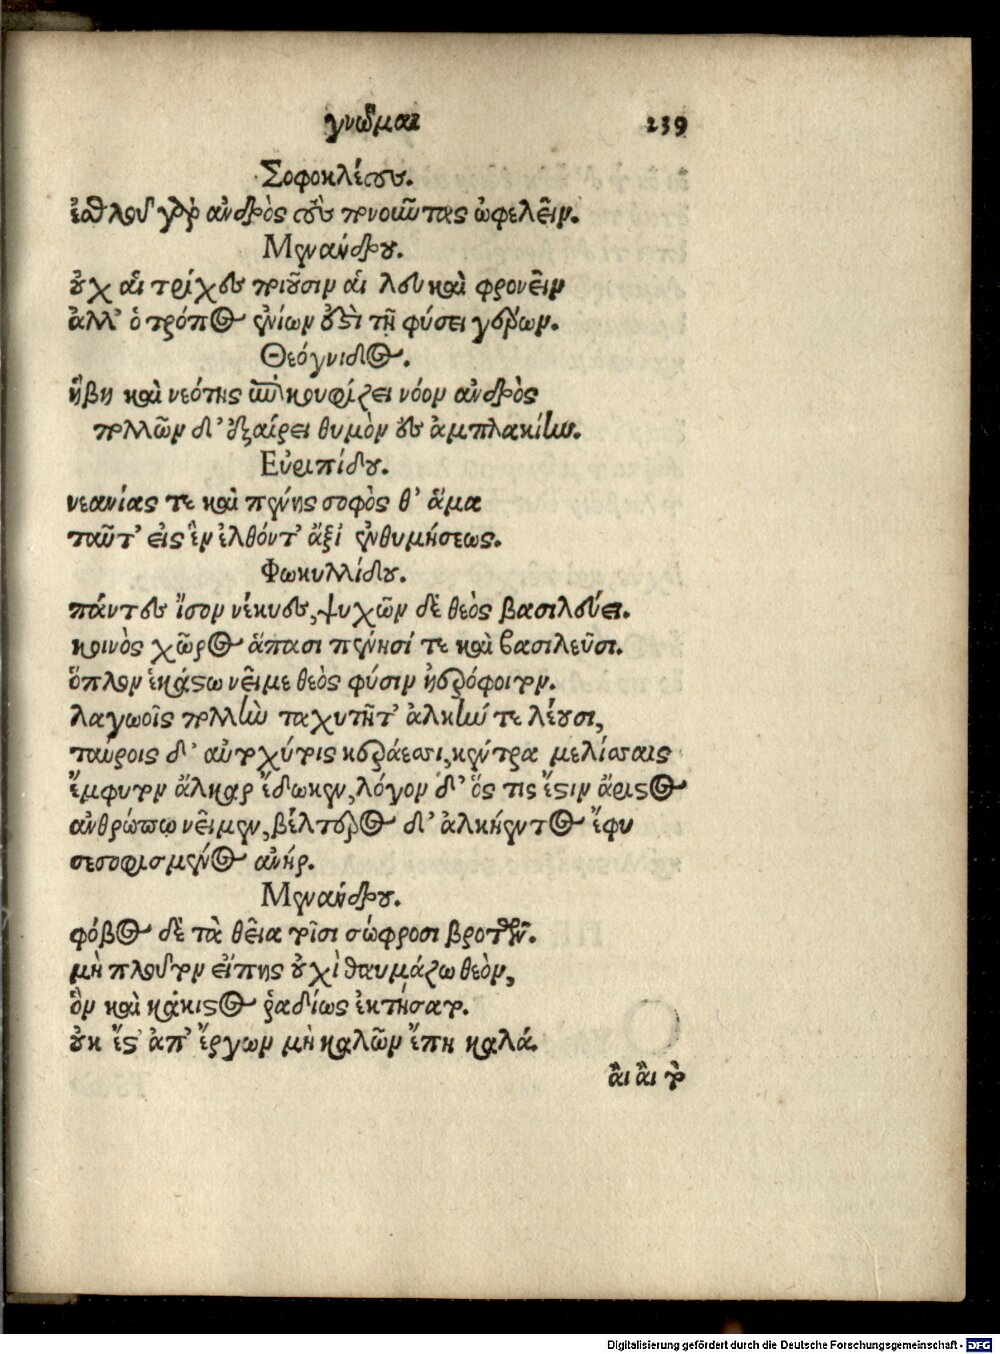 γνῶμαι 239
Σοφοκλέους.
ἐσθλοῦ γὰρ ἀνδρὸς τοὺς πονοῦντας ὠφελεῖν.
Μενάνδρου.
οὐχ αἱ τρίχες ποιοῦσιν αἱ λευκαὶ φρονεῖν
ἀλλ' ὁ τρόπος ἐνίων ἐστὶ τῇ φύσει γέρων.
Θεόγνιδος.
ἥβη καὶ νεότης ἐπικουφίζει νόον ἀνδρὸς
πολλῶν δ' ἐξαίρει θυμὸν ἐς ἀμπλακίην.
Εὐριπίδου.
νεανίας τε καὶ πένης σοφὸς θ' ἅμα
ταῦτ' εἰς ἓν ἐλθόντ' ἄξι' ἐνθυμήσεως.
Φωκυλλίδου.
πάντες ἴσον νέκυες, ψυχῶν δὲ θεὸς βασιλεύει.
κοινὸς χῶρος ἅπασι πένησί τε καὶ βασιλεῦσι.
ὅπλον ἑκάστω νεῖμε θεὸς φύσιν ἠερόφοιτον.
λαγωοῖς πολλὴν ταχυτῆτ' ἀλκήν τε λέουσι,
ταύροις δ' αὐτοχύτοις κεράεσσι, κέντρα μελίσσαις
ἔμφυτον ἄλκαρ ἔδωκεν, λόγον δ' ὅς τις ἔστιν ἄριστος
ἀνθρώπῳ νεῖμεν, βέλτερος δ' ἀλκήεντος ἔφυ
σεσοφισμένος ἀνήρ.
Μενάνδρου.
φόβος δὲ τὰ θεῖα τοῖσι σώφροσι βροτῶν.
μὴ πλοῦτον εἴπης οὐχὶ θαυμάζω θεὸν,
ὃν καὶ κάκιστος ῥαδίως ἐκτήσατο.
οὐκ ἔστ' ἀπ' ἔργων μὴ καλῶν ἔπη καλά.
αἲ αἲ τὸ
Digitalisierung gefördert durch die Deutsche Forschungsgemeinschaft - DFG